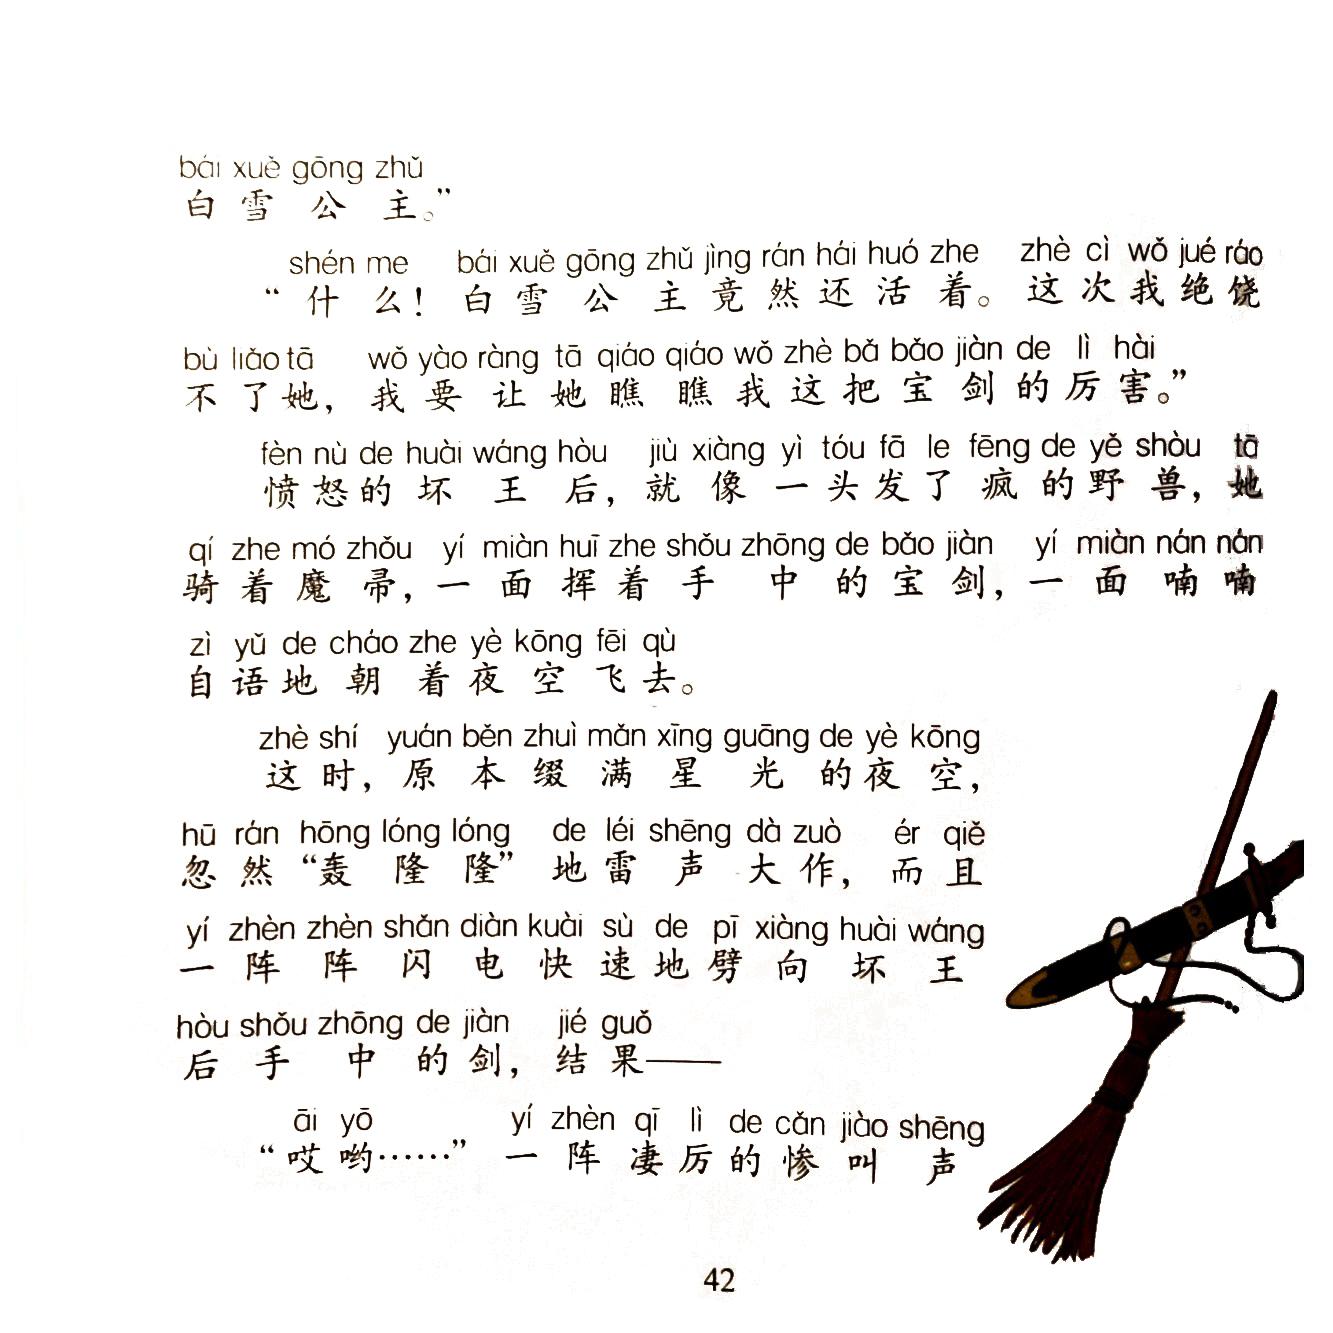 bái xuě gōng zhǔ
白雪公主。”
shén me bái xuě gōng zhǔ jìng rán hái huó zhe zhè cì wǒ jué ráo
“什么！白雪公主竟然还活着。这次我绝饶
bù liǎo tā wǒ yào ràng tā qiáo qiáo wǒ zhè bǎ bǎo jiàn de lì hài
不了她，我要让她瞧瞧我这把宝剑的厉害。”
fèn nù de huài wáng hòu jiù xiàng yì tóu fā le fēng de yě shòu tā
愤怒的坏王后，就像一头发了疯的野兽，她
qí zhe mó zhǒu yí miàn huī zhe shǒu zhōng de bǎo jiàn yí miàn nán nán
骑着魔帚，一面挥着手中的宝剑，一面喃喃
zì yǔ de cháo zhe yè kōng fēi qù
自语地朝着夜空飞去。
zhè shí yuán běn zhuì mǎn xīng guāng de yè kōng
这时，原本缀满星光的夜空，
hū rán hōng lóng lóng de léi shēng dà zuò ér qiě
忽然“轰隆隆”地雷声大作，而且
yí zhèn zhèn shǎn diàn kuài sù de pī xiàng huài wáng
一阵阵闪电快速地劈向坏王
hòu shǒu zhōng de jiàn jié guǒ
后手中的剑，结果——
āi yō yí zhèn qī lì de cǎn jiào shēng
“哎哟……”一阵凄厉的惨叫声
42